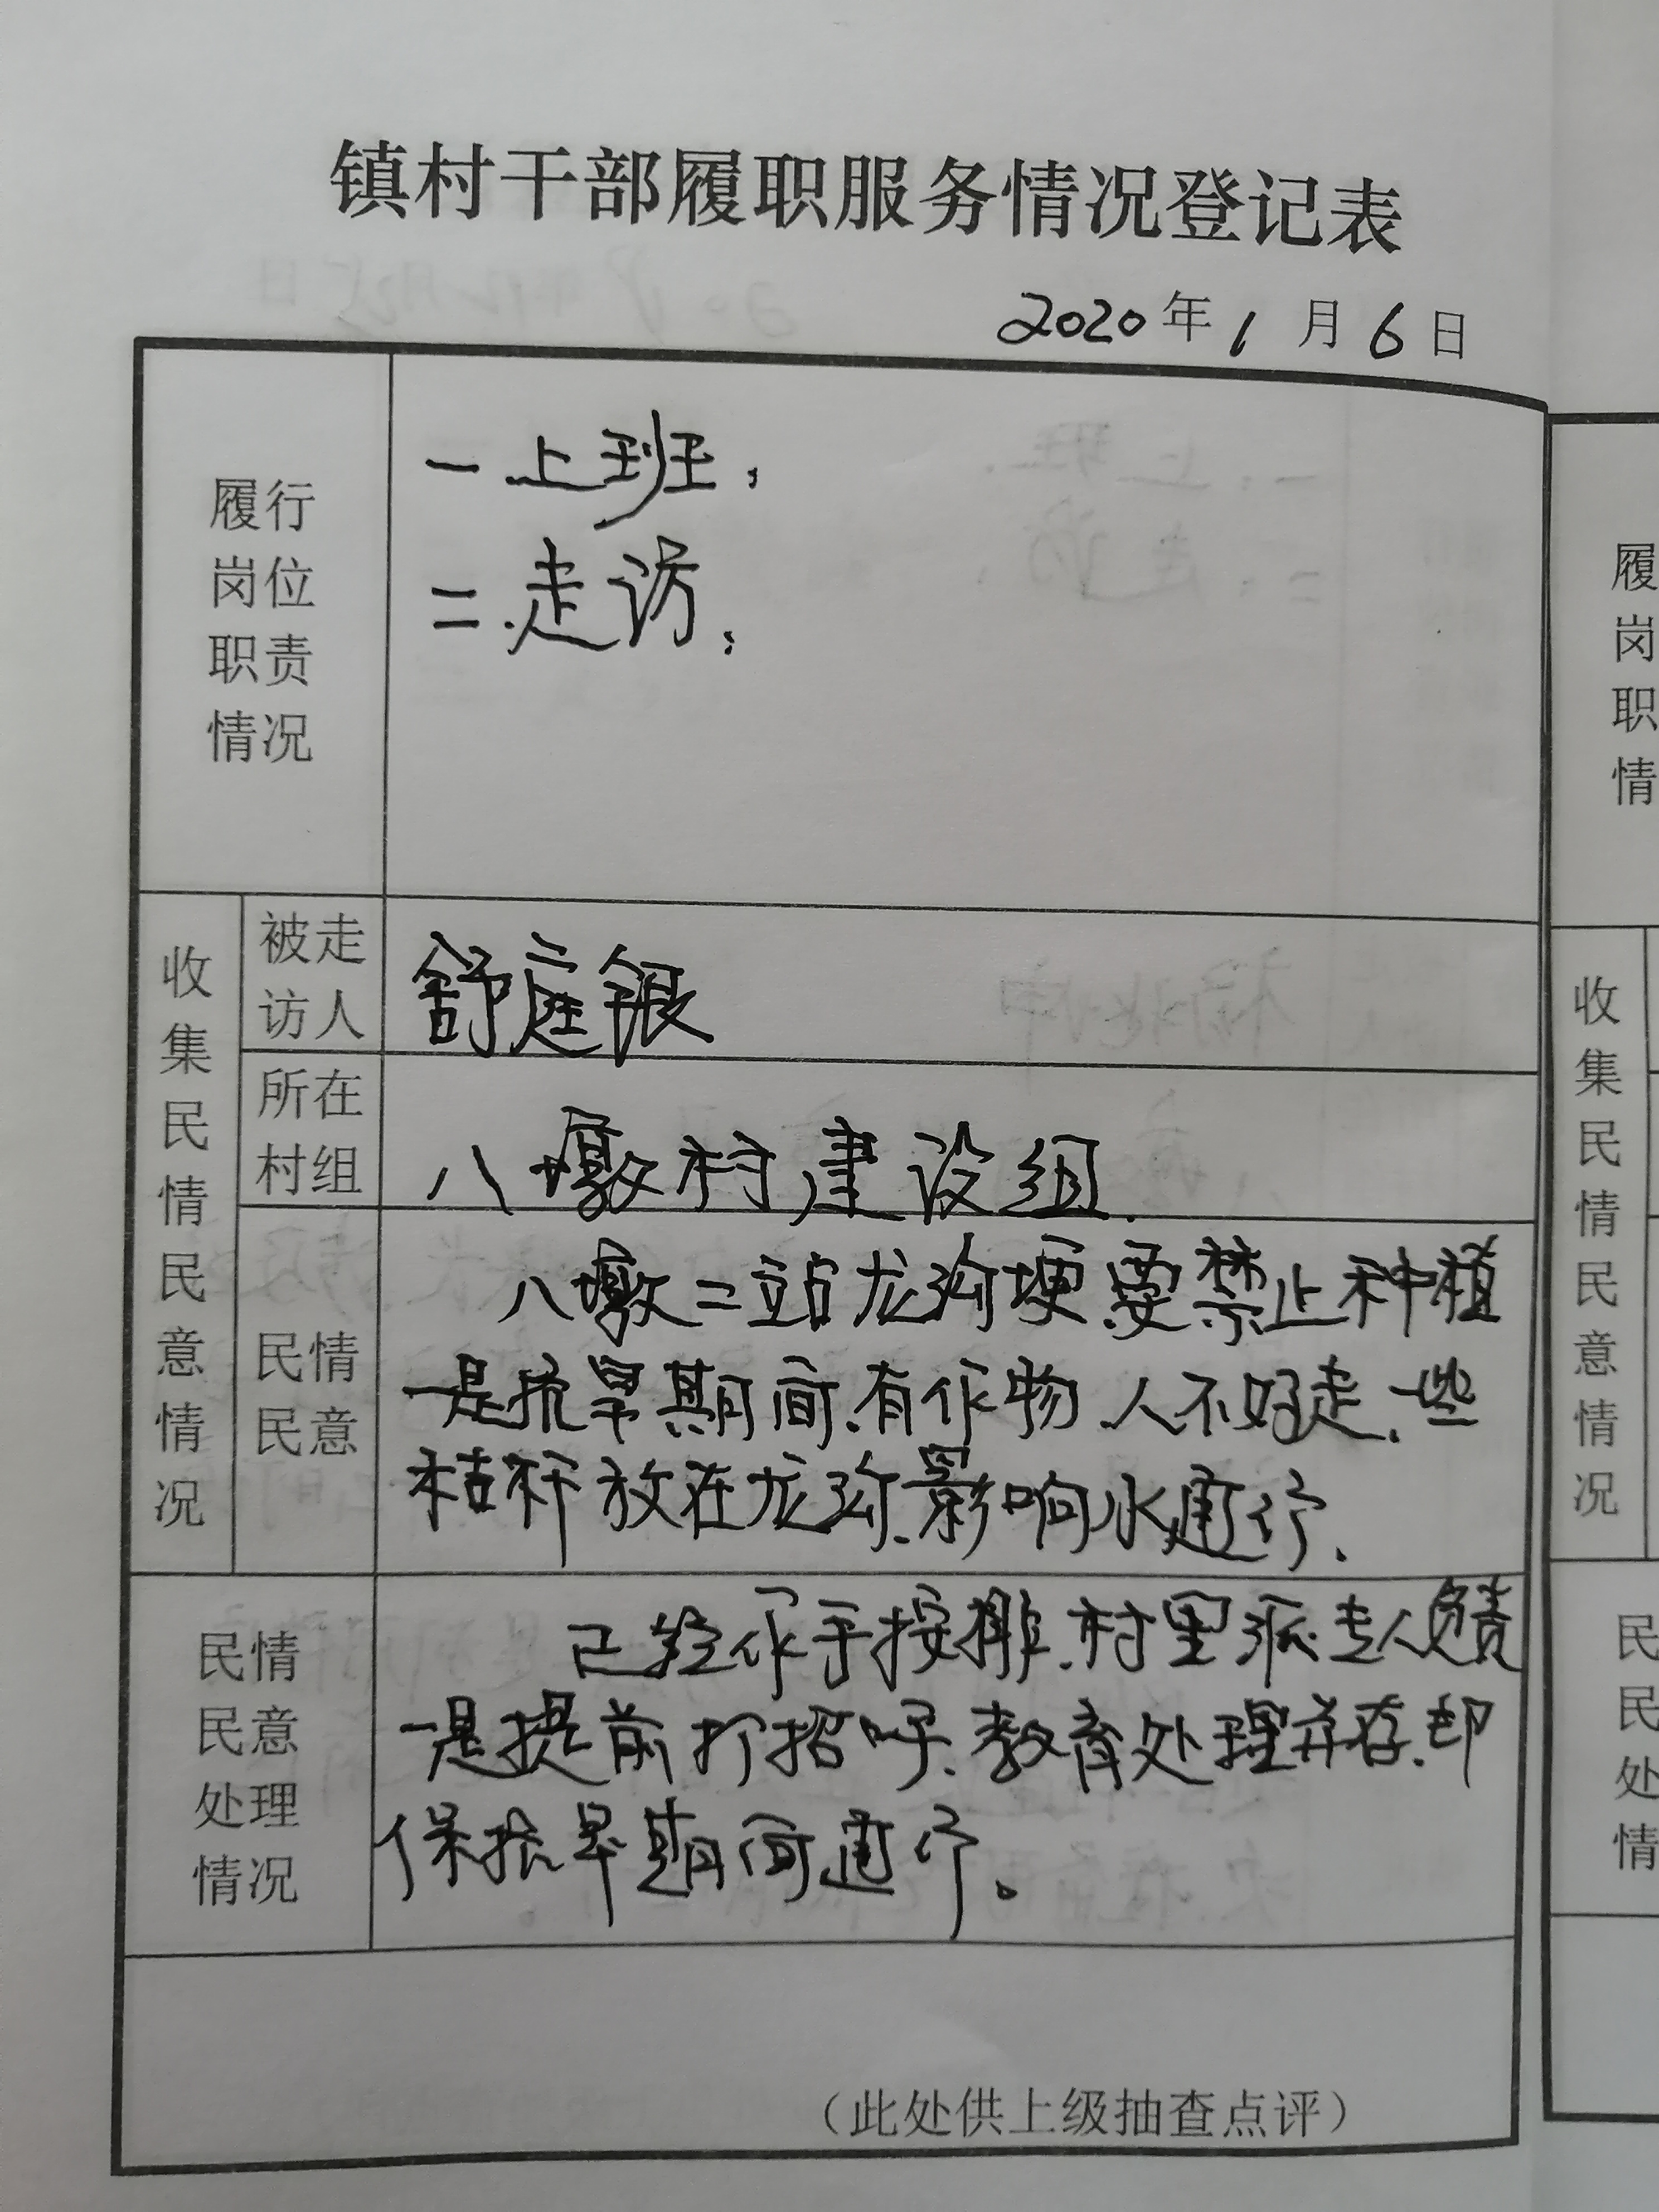 镇村干部履职服务情况登记表
2020年1月6日
履行
岗位
职责
情况
一上班,
二.走访,
收集民情民意情况
被走
访人
舒庭银
所在
村组
八墩村建设组.
民情
民意
八墩二站龙沟埂要禁止种植
一是抗旱期间.有作物.人不好走.一些
秸秆放在龙沟.影响水通行.
民情
民意
处理
情况
已经作于按排.村里派专人负责
一是提前打招呼.教育处理并存.却
保抗旱期间通行。
(此处供上级抽查点评)
履
岗
职
情
收集民情民意情况
民
民
处
情